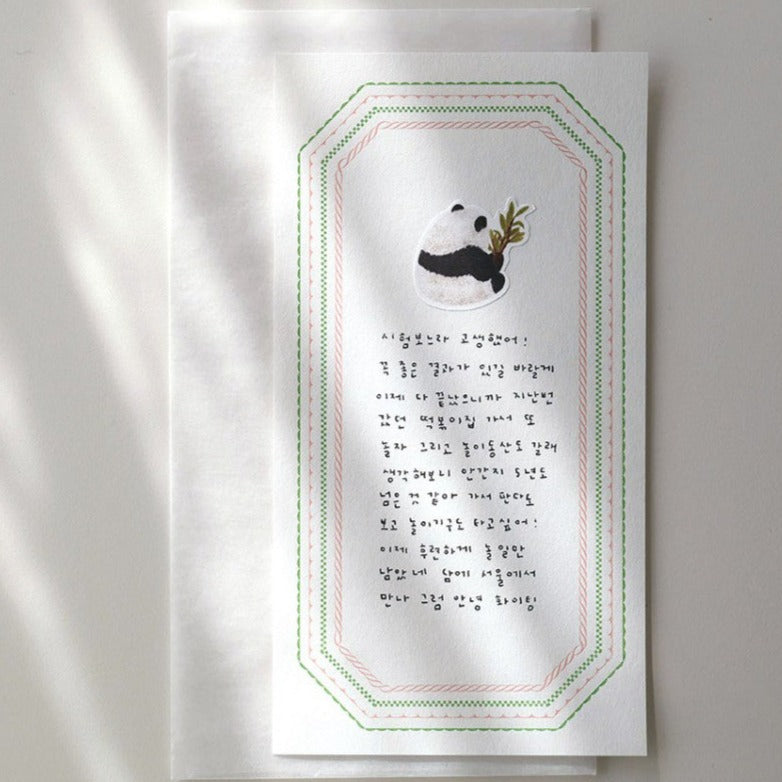 시험보느라 고생했어!
꼭 좋은 결과가 있길 바랄게
이제 다 끝났으니까 지난번
갔던 떡볶이집 가서 또
놀자 그리고 놀이동산도 갈래
생각해보니 안간지 5년도
넘은 것 같아 가서 판다도
보고 놀이기구도 타고싶어!
이제 후련하게 놀일만
남았네 담에 서울에서
만나 그럼 안녕 화이팅